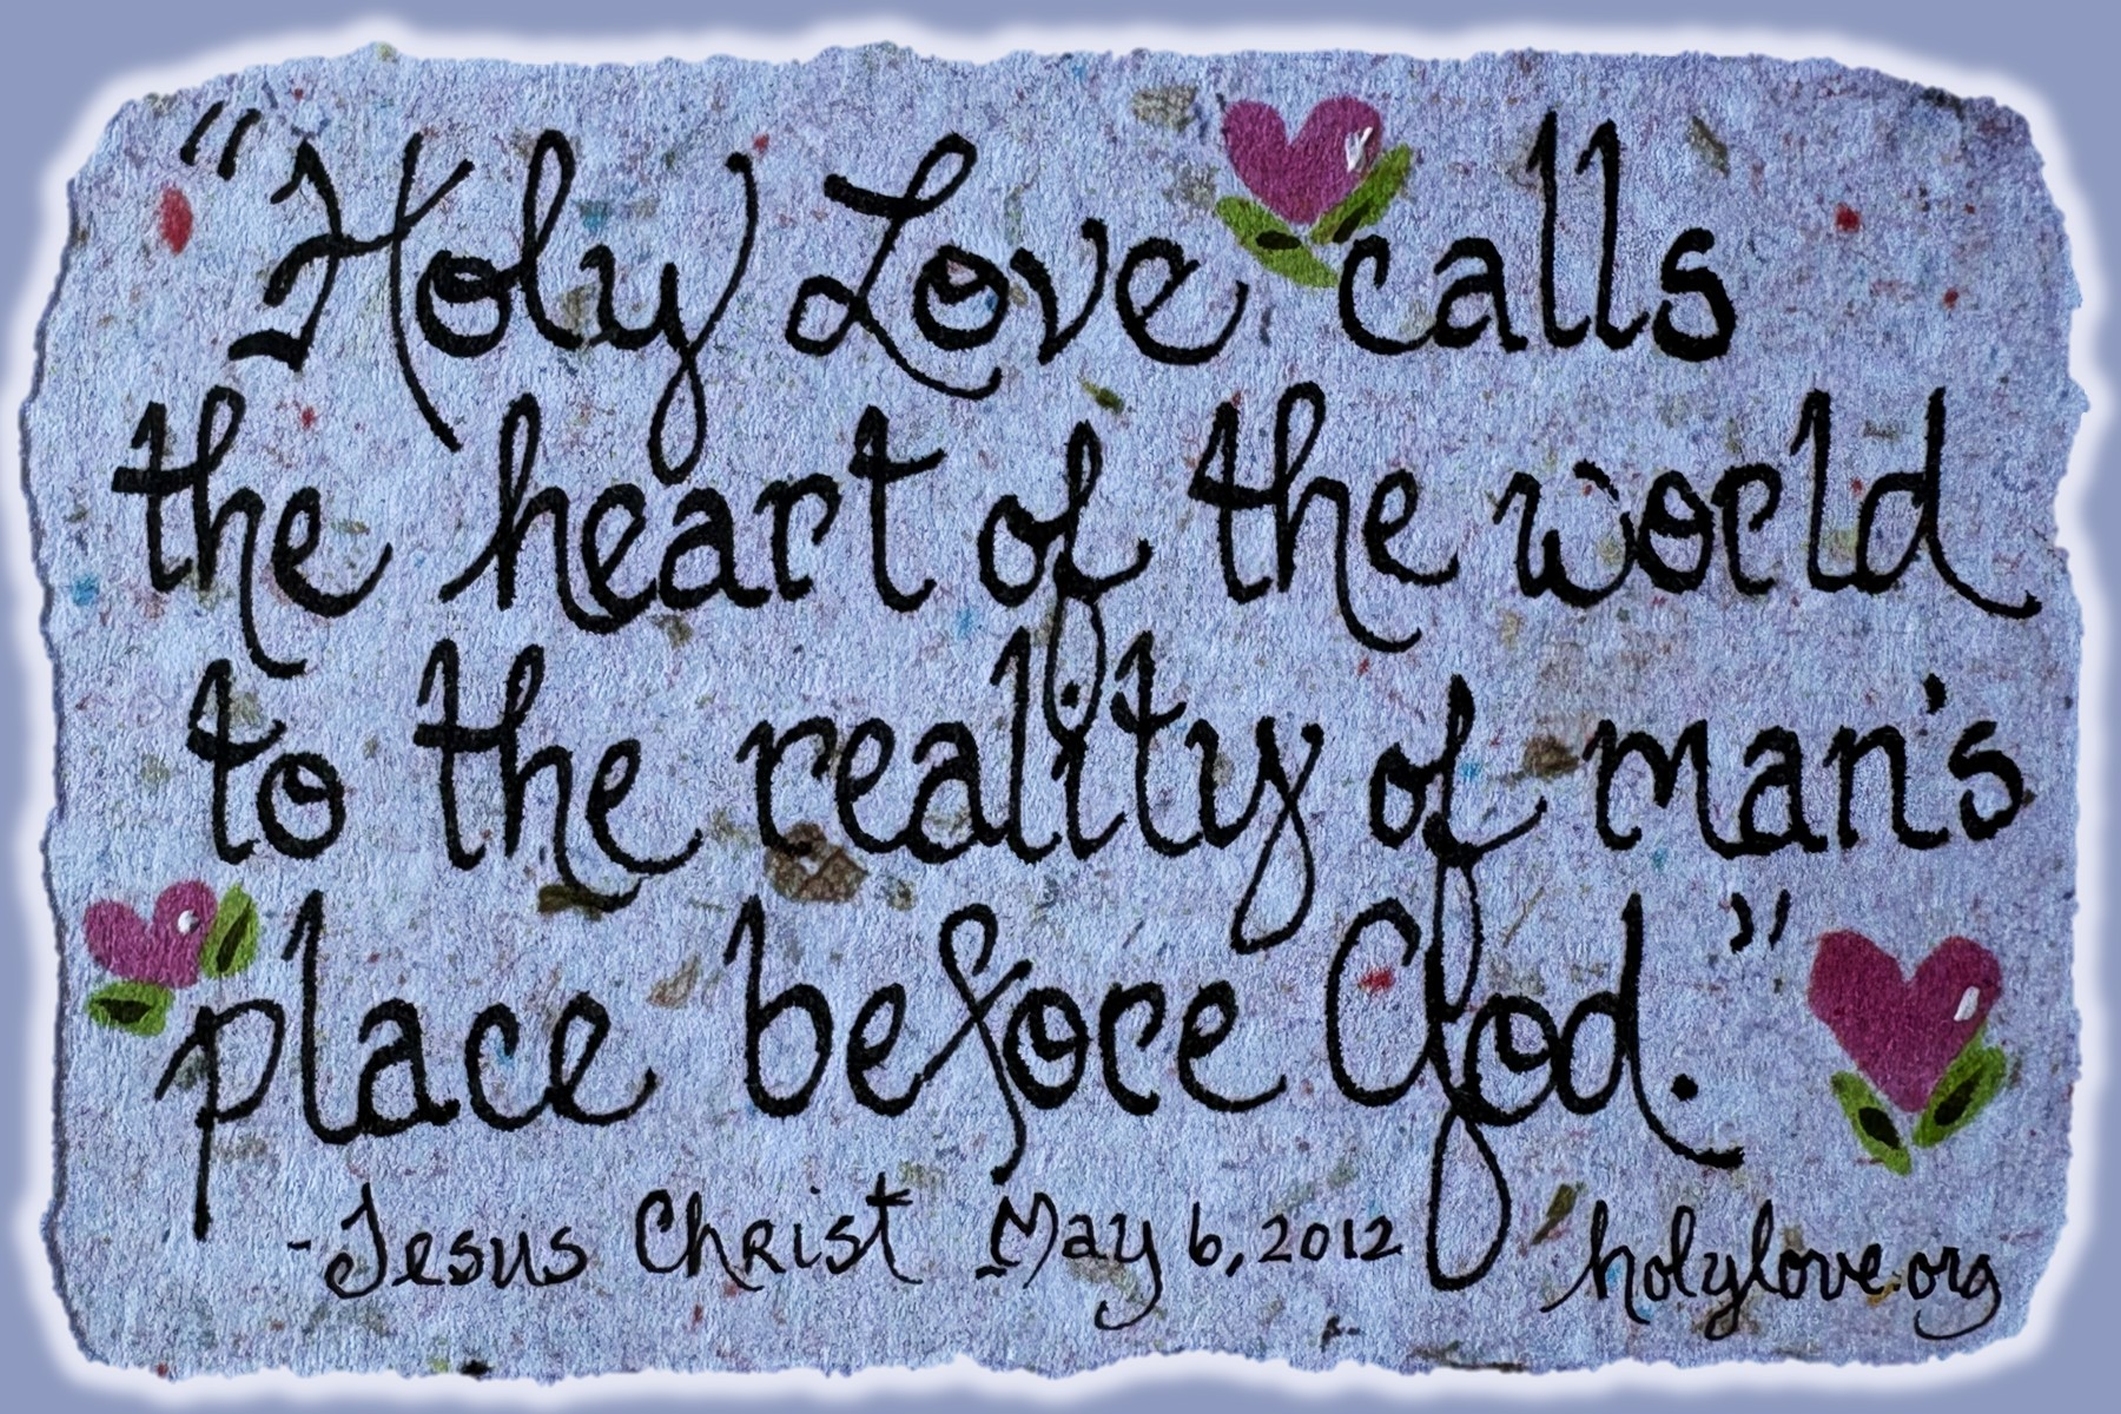 "Holy Love calls
the heart of the world
to the reality of man's
place before God."
-Jesus Christ May 6, 2012 holylove.org